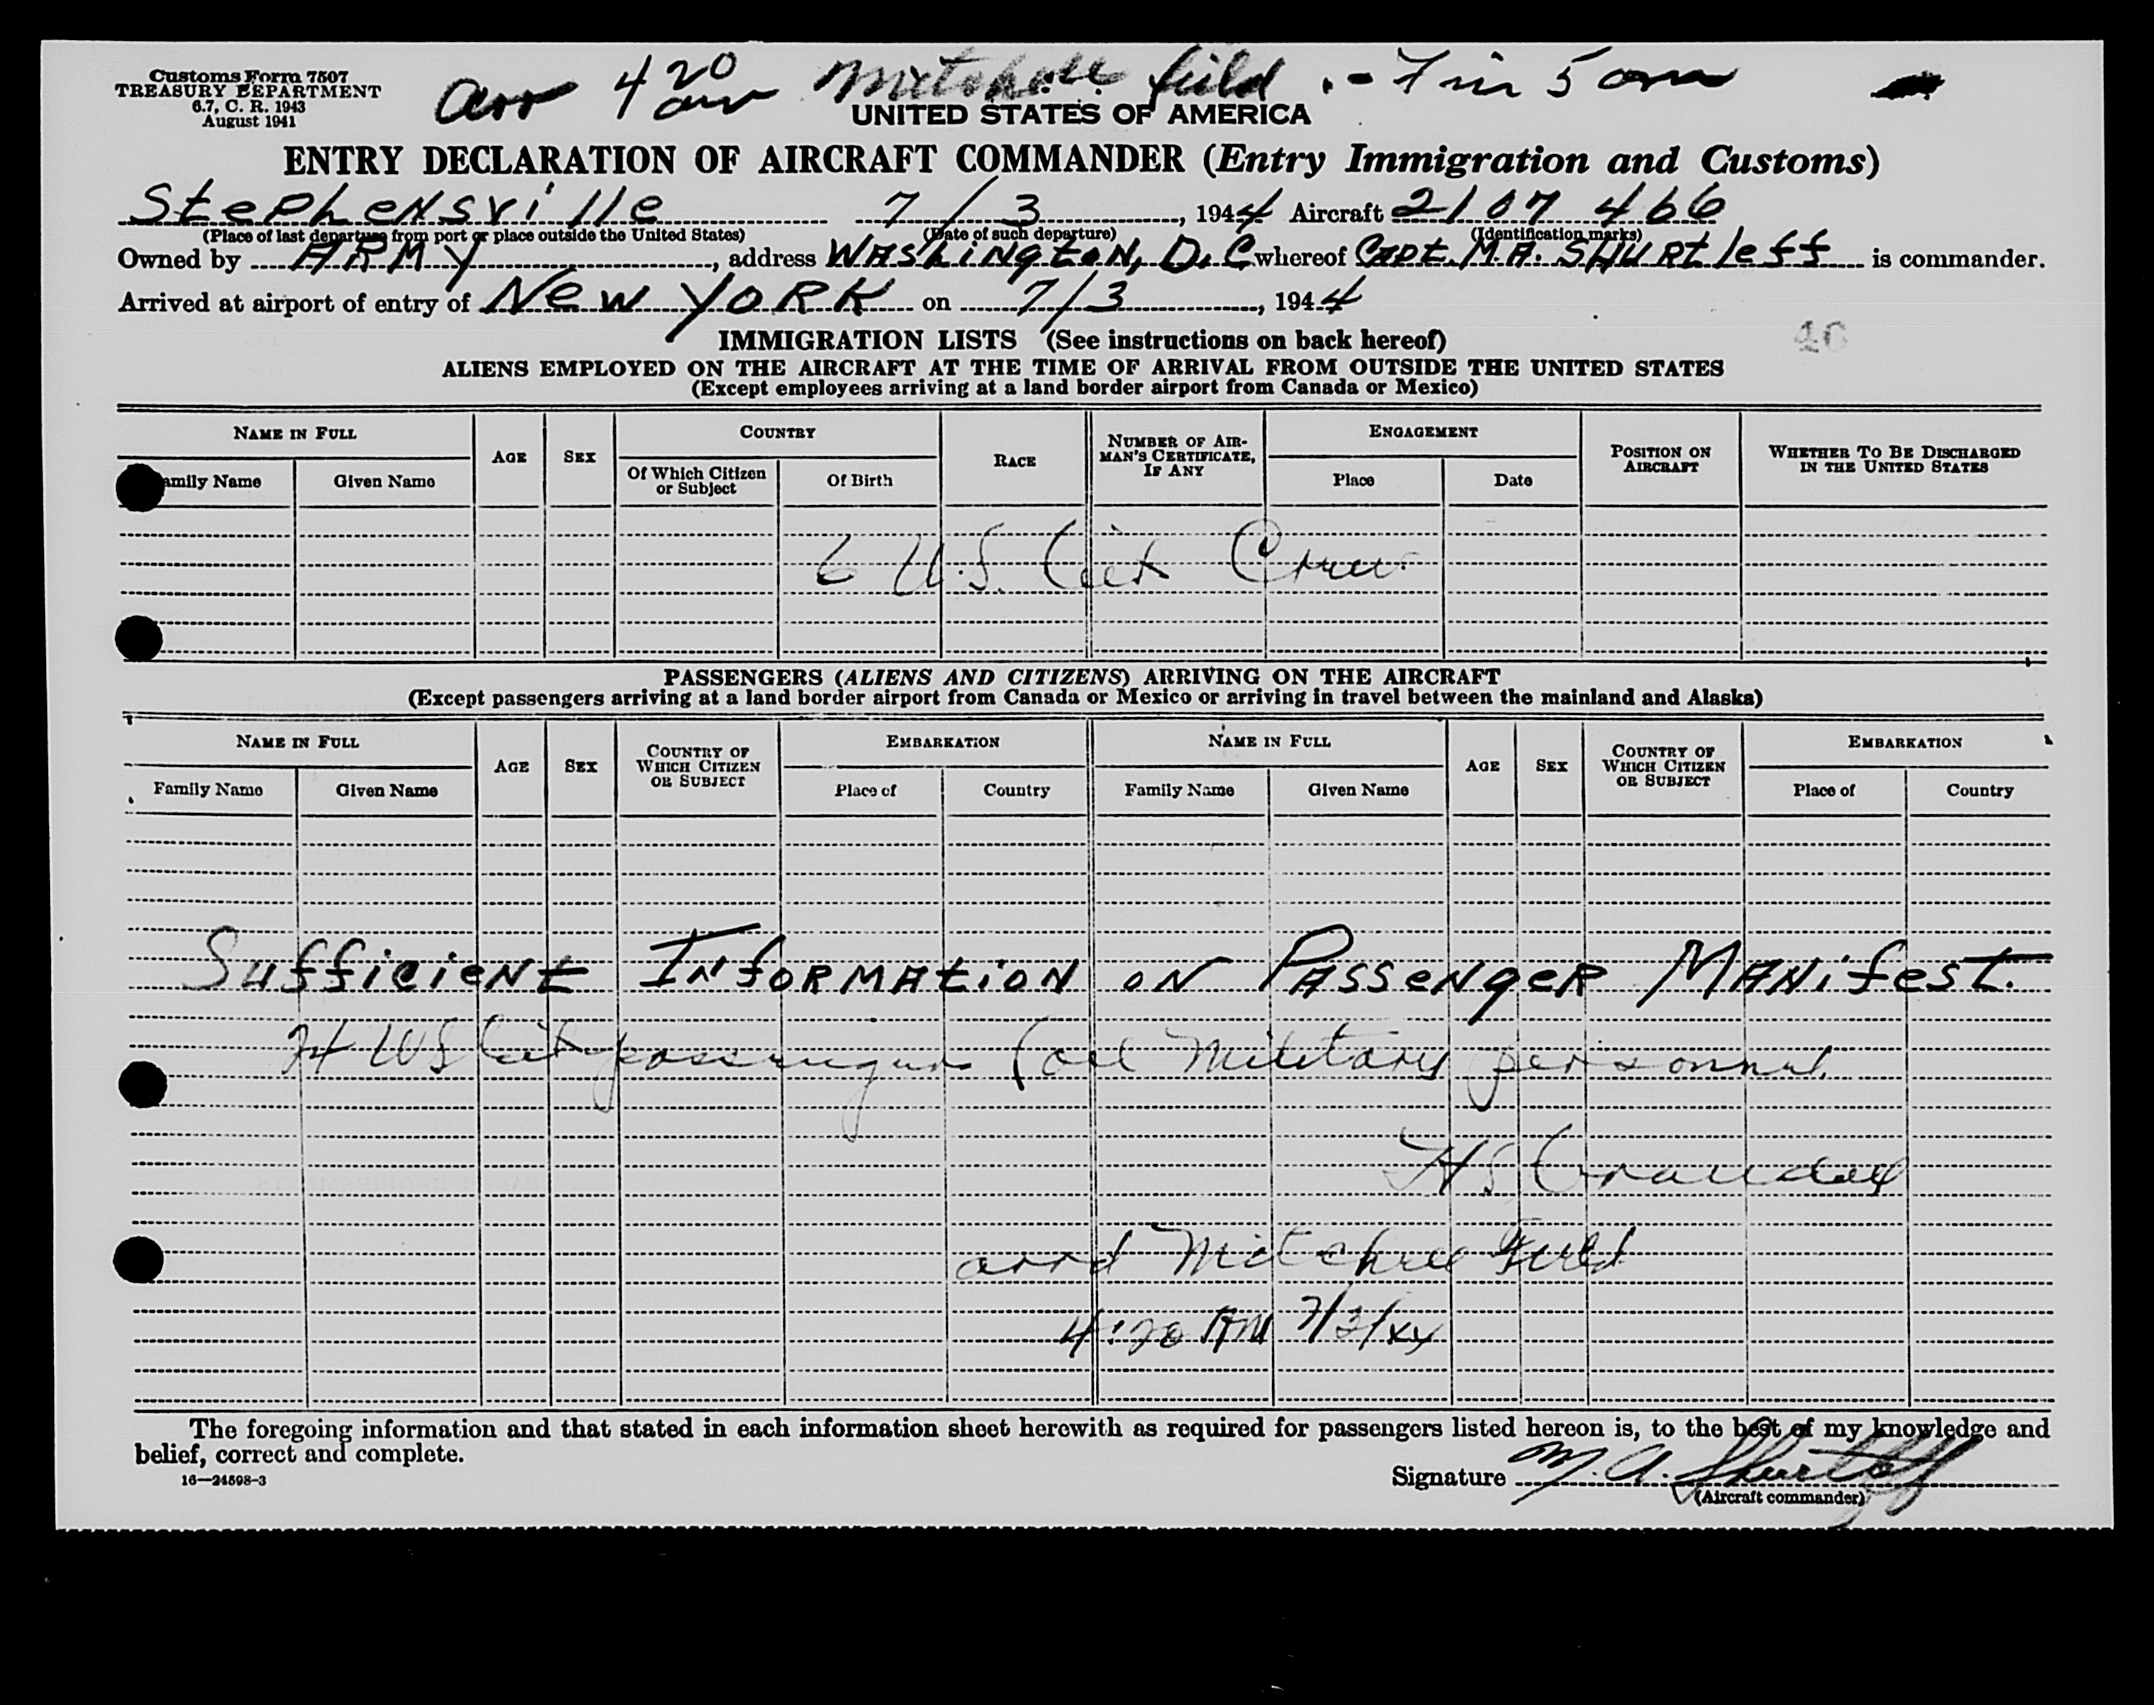 Customs Form 7507
TREASURY DEPARTMENT
6.7, C. R. 1943
August 1941
arr 4 20 am Mitchell field - Fin 5 am
UNITED STATES OF AMERICA
ENTRY DECLARATION OF AIRCRAFT COMMANDER (Entry Immigration and Customs)
Stephensville 7/3, 1944 Aircraft 2107466
(Place of last departure from port or place outside the United States) (Date of such departure) (Identification marks)
Owned by ARMY, address Washington, D.C whereof Capt. M.A. Shurtleff is commander.
Arrived at airport of entry of New York on 7/3, 1944
46
IMMIGRATION LISTS (See instructions on back hereof)
ALIENS EMPLOYED ON THE AIRCRAFT AT THE TIME OF ARRIVAL FROM OUTSIDE THE UNITED STATES
(Except employees arriving at a land border airport from Canada or Mexico)
NAME IN FULL AGE SEX COUNTRY RACE NUMBER OF AIRMAN'S CERTIFICATE, IF ANY ENGAGEMENT POSITION ON AIRCRAFT WHETHER TO BE DISCHARGED IN THE UNITED STATES
amily Name Given Name Of Which Citizen or Subject Of Birth Place Date
6 U.S. Cit Crew
PASSENGERS (ALIENS AND CITIZENS) ARRIVING ON THE AIRCRAFT
(Except passengers arriving at a land border airport from Canada or Mexico or arriving in travel between the mainland and Alaska)
NAME IN FULL AGE SEX COUNTRY OF WHICH CITIZEN OR SUBJECT EMBARKATION NAME IN FULL AGE SEX COUNTRY OF WHICH CITIZEN OR SUBJECT EMBARKATION
Family Name Given Name Place of Country Family Name Given Name Place of Country
Sufficient Information on Passenger Manifest.
24 US Cit passengers (all Military personnel
H S Crandall
arrd Mitchell Field
4:20 AM 7/3/44
The foregoing information and that stated in each information sheet herewith as required for passengers listed hereon is, to the best of my knowledge and
belief, correct and complete.
16—24598-3
Signature M. A. Shurtleff
(Aircraft commander)